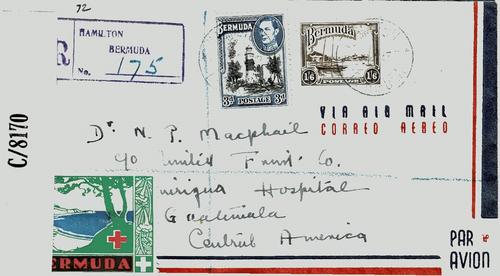 72
R
HAMILTON
BERMUDA
No. 175
BERMUDA
3d POSTAGE 3d
Bermuda
1/6 POSTAGE 1/6
VIA AIR MAIL
CORREO AEREO
C/8170
Dr. N. P. Macphail
c/o United Fruit Co.
Quirigua Hospital
Guatemala
Central America
BERMUDA
PAR
AVION